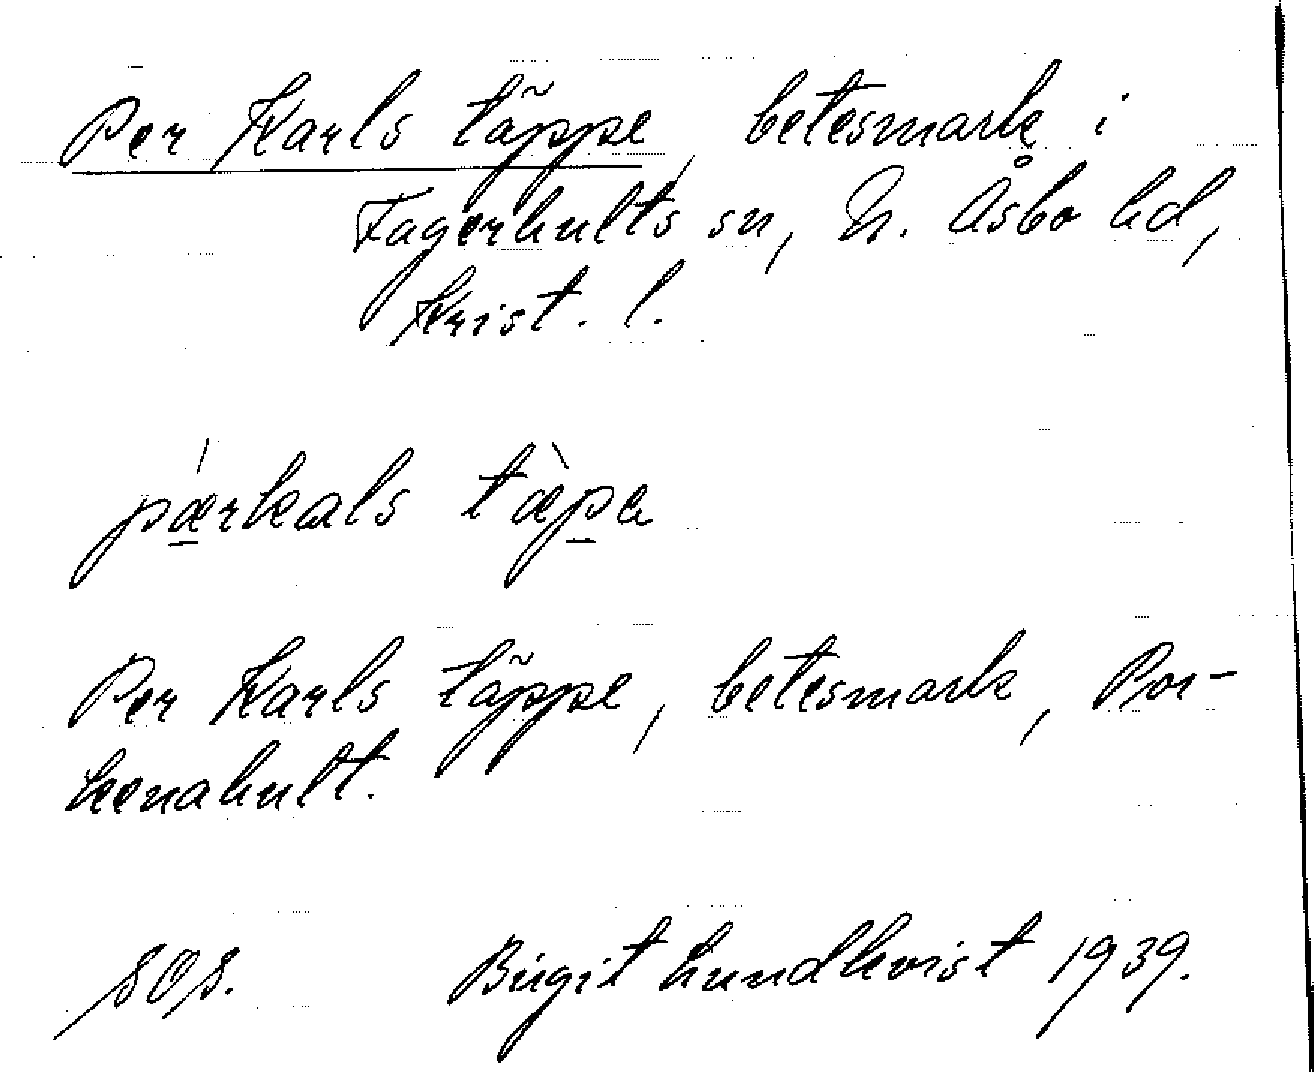 Per Karls täppe, betesmark i
Fagerhults sn, N. Åsbo hd,
Krist. l.
pærkals tæpa
Per Karls täppe, betesmark, Por-
kenahult.
SOS. Birgit Lundkvist 1939.